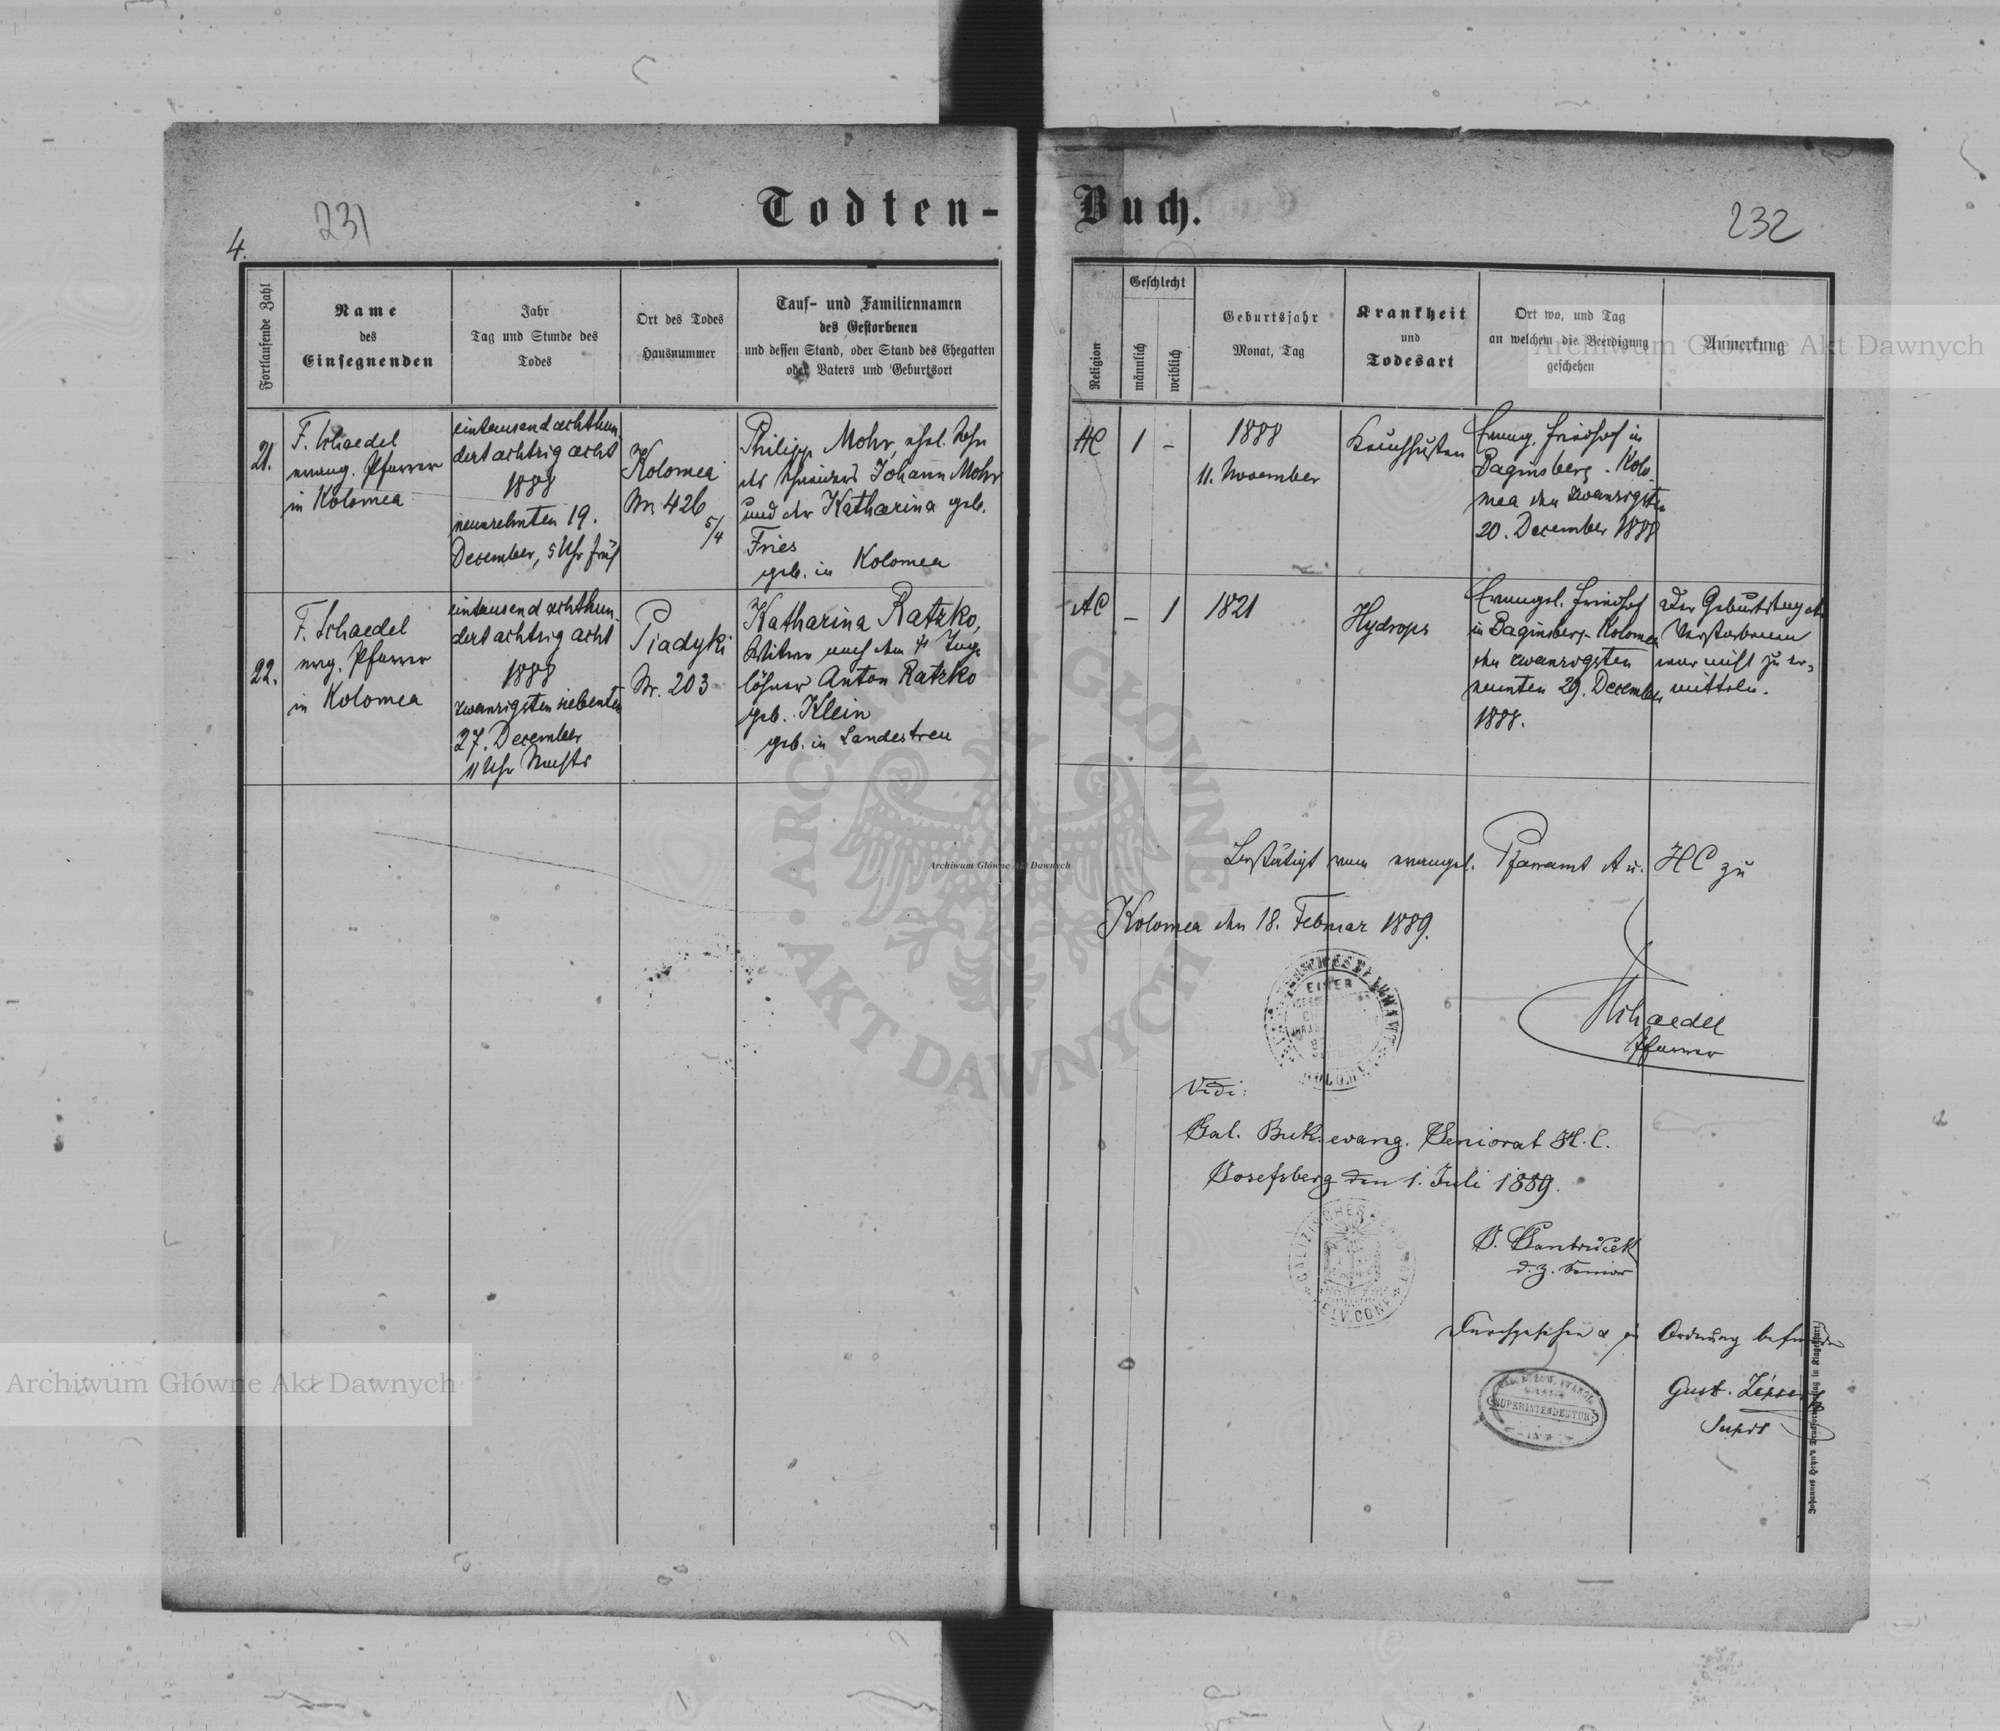 Todten-Buch.
231
232
4.
Fortlaufende Zahl
Name
des
Einsegnenden
Jahr
Tag und Stunde des
Todes
Ort des Todes
Hausnummer
Tauf- und Familiennamen
des Gestorbenen
und dessen Stand, oder Stand des Ehegatten
oder Vaters und Geburtsort
Religion
Geschlecht
männlich
weiblich
Geburtsjahr
Monat, Tag
Krankheit
und
Todesart
Ort wo, und Tag
an welchem die Beerdigung
geschehen
Anmerkung
21.
F. Schaedel
evang. Pfarrer
in Kolomea
eintausend achthun
dert achtzig acht
1888
neunzehnten 19.
December, 5 Uhr früh
Kolomea
Nr. 426
5/4
Philipp Mohr, ehel. Sohn
des Johann Mohr
und der Katharina geb.
Fries
geb. in Kolomea
AC
1
–
1888
11. November
Keuchhusten
Evang. Friedhof in
Baginsberg-Kolo
mea den zwanzigsten
20. December 1888
22.
F. Schaedel
evg. Pfarrer
in Kolomea
eintausend achthun
dert achtzig acht
1888
zwanzigsten siebenten
27. December
11 Uhr Nachts
Piadyki
Nr. 203
Katharina Ratzko,
Witwe nach dem Tag-
löhner Anton Ratzko
geb. Klein
geb. in Landestreu
AC
–
1
1821
Hydrops
Evangel. Friedhof
in Baginsberg-Kolomea
den zwanzigsten
neunten 29. December
1888.
Der Geburtstag der
Verstorbenen
war nicht zu er-
mitteln.
Bestätigt vom evangel. Pfarramt A u. HC zu
Kolomea den 18. Februar 1889.
Schaedel
Pfarrer
Vidi:
Gal. Buk. evang. Seniorat H. C.
Josefsberg den 1. Juli 1889.
d. z. Senior
GALIZISCHES
HELV. CONF.
Durchgesehen & in Ordnung befunden
SUPERINTENDENTUR
Gust.
Supdt
Johannes Heyn's Verlag in Klagenfurt
Archiwum Główne Akt Dawnych
Archiwum Główne Akt Dawnych
Archiwum Główne Akt Dawnych
ARCHIWUM GŁÓWNE • AKT DAWNYCH •